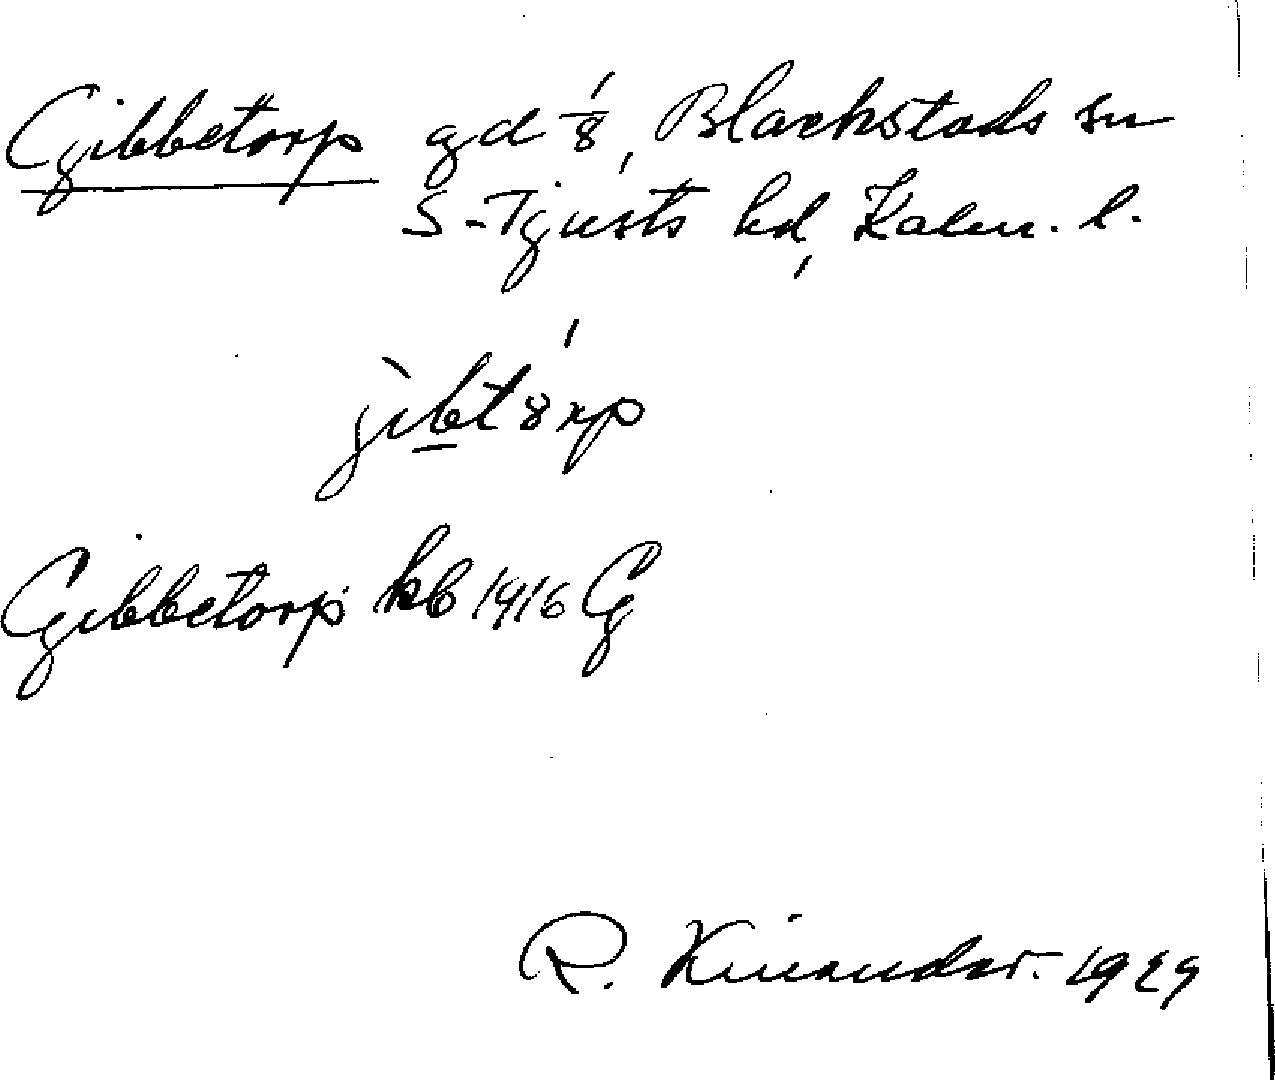 Gibbetorp gd 1/8, Blackstads sn
S-Tjusts hd, Kalm. l.
jibtorp
Gibbetorp kb 1916 G
R. Kinander. 1929